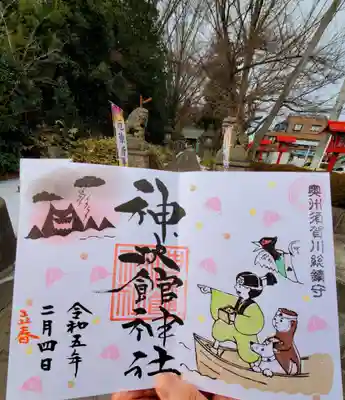 奥州須賀川総鎮守
神炊館神社
令和五年
二月四日
立春